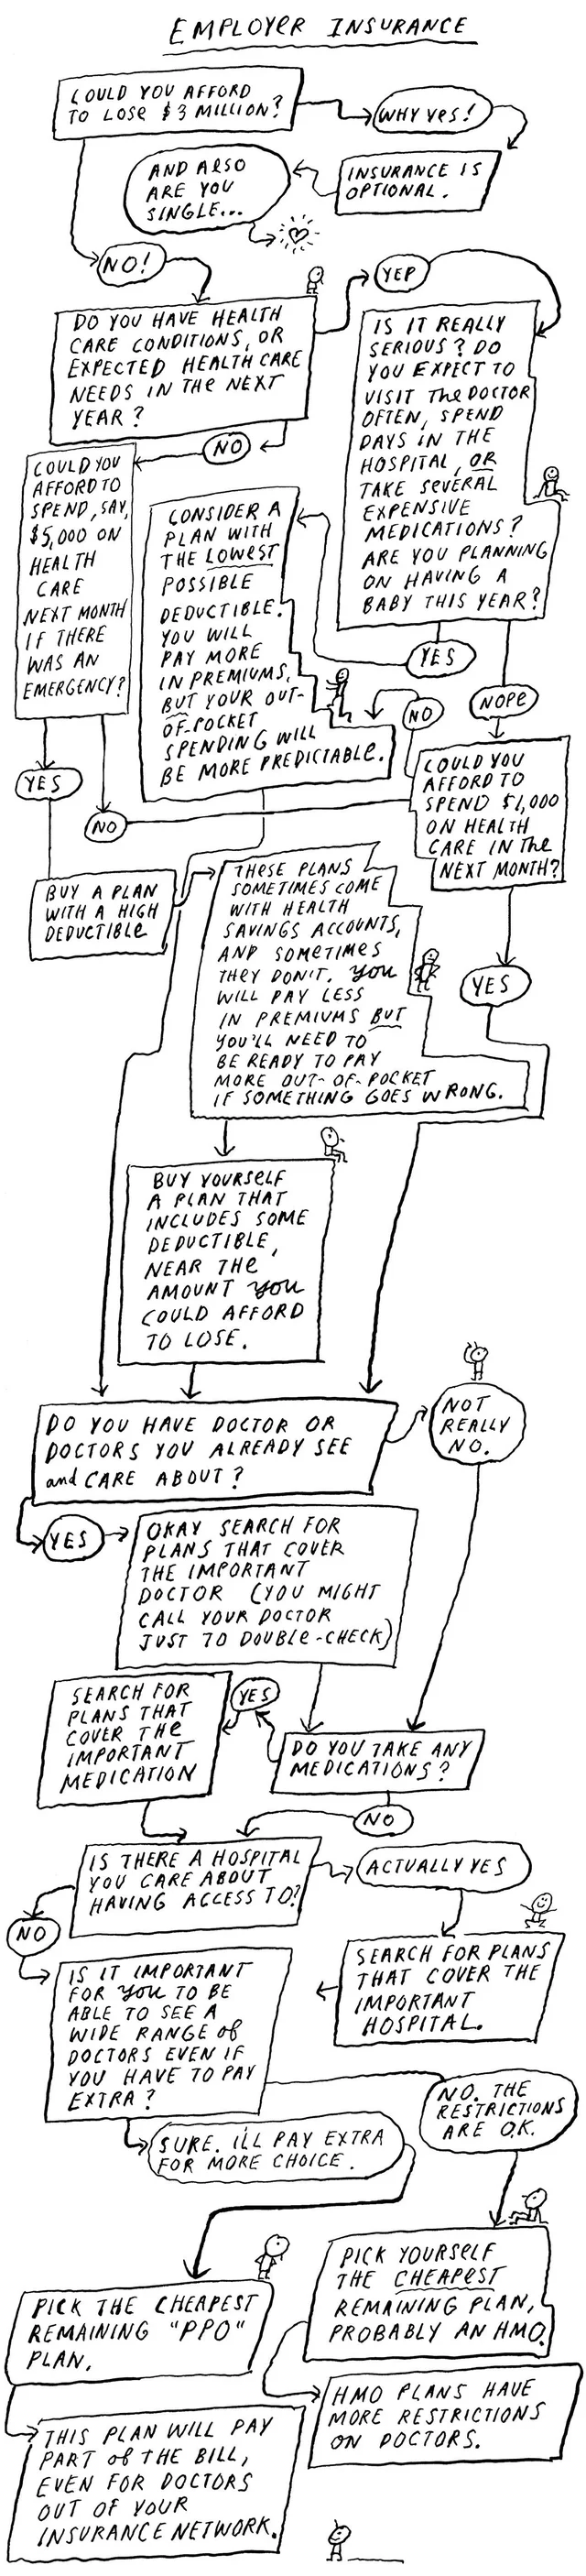 EMPLOYER INSURANCE
COULD YOU AFFORD
TO LOSE $3 MILLION?
WHY YES!
INSURANCE IS
OPTIONAL.
AND ALSO
ARE YOU
SINGLE...
NO!
YEP
DO YOU HAVE HEALTH
CARE CONDITIONS, OR
EXPECTED HEALTH CARE
NEEDS IN THE NEXT
YEAR?
IS IT REALLY
SERIOUS? DO
YOU EXPECT TO
VISIT THE DOCTOR
OFTEN, SPEND
DAYS IN THE
HOSPITAL, OR
TAKE SEVERAL
EXPENSIVE
MEDICATIONS?
ARE YOU PLANNING
ON HAVING A
BABY THIS YEAR?
NO
COULD YOU
AFFORD TO
SPEND, SAY,
$5,000 ON
HEALTH
CARE
NEXT MONTH
IF THERE
WAS AN
EMERGENCY?
CONSIDER A
PLAN WITH
THE LOWEST
POSSIBLE
DEDUCTIBLE.
YOU WILL
PAY MORE
IN PREMIUMS,
BUT YOUR OUT-
OF-POCKET
SPENDING WILL
BE MORE PREDICTABLE.
YES
NO
NOPE
COULD YOU
AFFORD TO
SPEND $1,000
ON HEALTH
CARE IN THE
NEXT MONTH?
YES
NO
BUY A PLAN
WITH A HIGH
DEDUCTIBLE
THESE PLANS
SOMETIMES COME
WITH HEALTH
SAVINGS ACCOUNTS,
AND SOMETIMES
THEY DON'T. YOU
WILL PAY LESS
IN PREMIUMS BUT
YOU'LL NEED TO
BE READY TO PAY
MORE OUT-OF-POCKET
IF SOMETHING GOES WRONG.
YES
BUY YOURSELF
A PLAN THAT
INCLUDES SOME
DEDUCTIBLE,
NEAR THE
AMOUNT YOU
COULD AFFORD
TO LOSE.
DO YOU HAVE DOCTOR OR
DOCTORS YOU ALREADY SEE
and CARE ABOUT?
NOT
REALLY
NO.
YES
OKAY SEARCH FOR
PLANS THAT COVER
THE IMPORTANT
DOCTOR (YOU MIGHT
CALL YOUR DOCTOR
JUST TO DOUBLE-CHECK)
SEARCH FOR
PLANS THAT
COVER THE
IMPORTANT
MEDICATION
YES
DO YOU TAKE ANY
MEDICATIONS?
NO
IS THERE A HOSPITAL
YOU CARE ABOUT
HAVING ACCESS TO?
ACTUALLY YES
NO
SEARCH FOR PLANS
THAT COVER THE
IMPORTANT
HOSPITAL.
IS IT IMPORTANT
FOR YOU TO BE
ABLE TO SEE A
WIDE RANGE of
DOCTORS EVEN IF
YOU HAVE TO PAY
EXTRA?
NO. THE
RESTRICTIONS
ARE O.K.
SURE. I'LL PAY EXTRA
FOR MORE CHOICE.
PICK YOURSELF
THE CHEAPEST
REMAINING PLAN,
PROBABLY AN HMO.
PICK THE CHEAPEST
REMAINING "PPO"
PLAN.
HMO PLANS HAVE
MORE RESTRICTIONS
ON DOCTORS.
THIS PLAN WILL PAY
PART of THE BILL,
EVEN FOR DOCTORS
OUT OF YOUR
INSURANCE NETWORK.